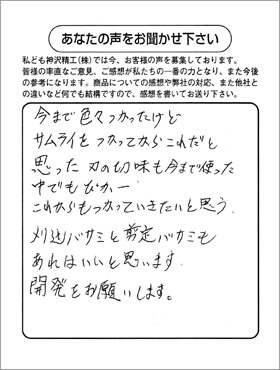 あなたの声をお聞かせ下さい
私ども神沢精工(株)では今、お客様の声を募集しております。
皆様の率直なご意見、ご感想が私たちの一番の力となり、また今後
の参考になります。商品についての感想や弊社の対応、また他社と
の違いなど何でも結構ですので、感想を書いてお送り下さい。
今まで色々つかったけど
サムライをつかってからこれだと
思った 刃の切味も今まで使った
中でもなかー
これからもつかっていきたいと思う.
刈込バサミと剪定バサミも
あればいいと思います.
開発をお願いします。